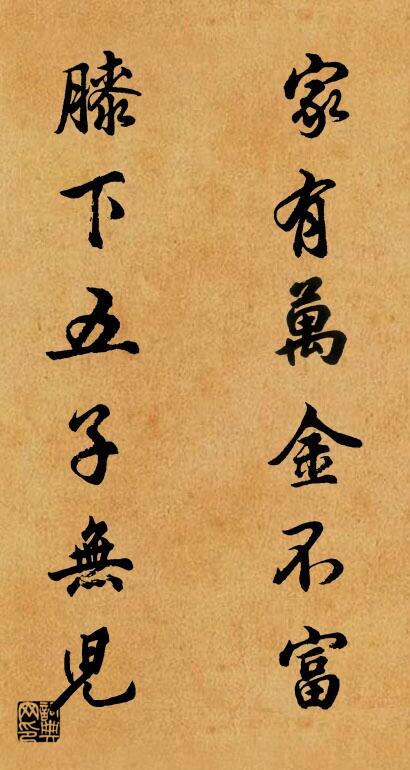 家有萬金不富
膝下五子無兒